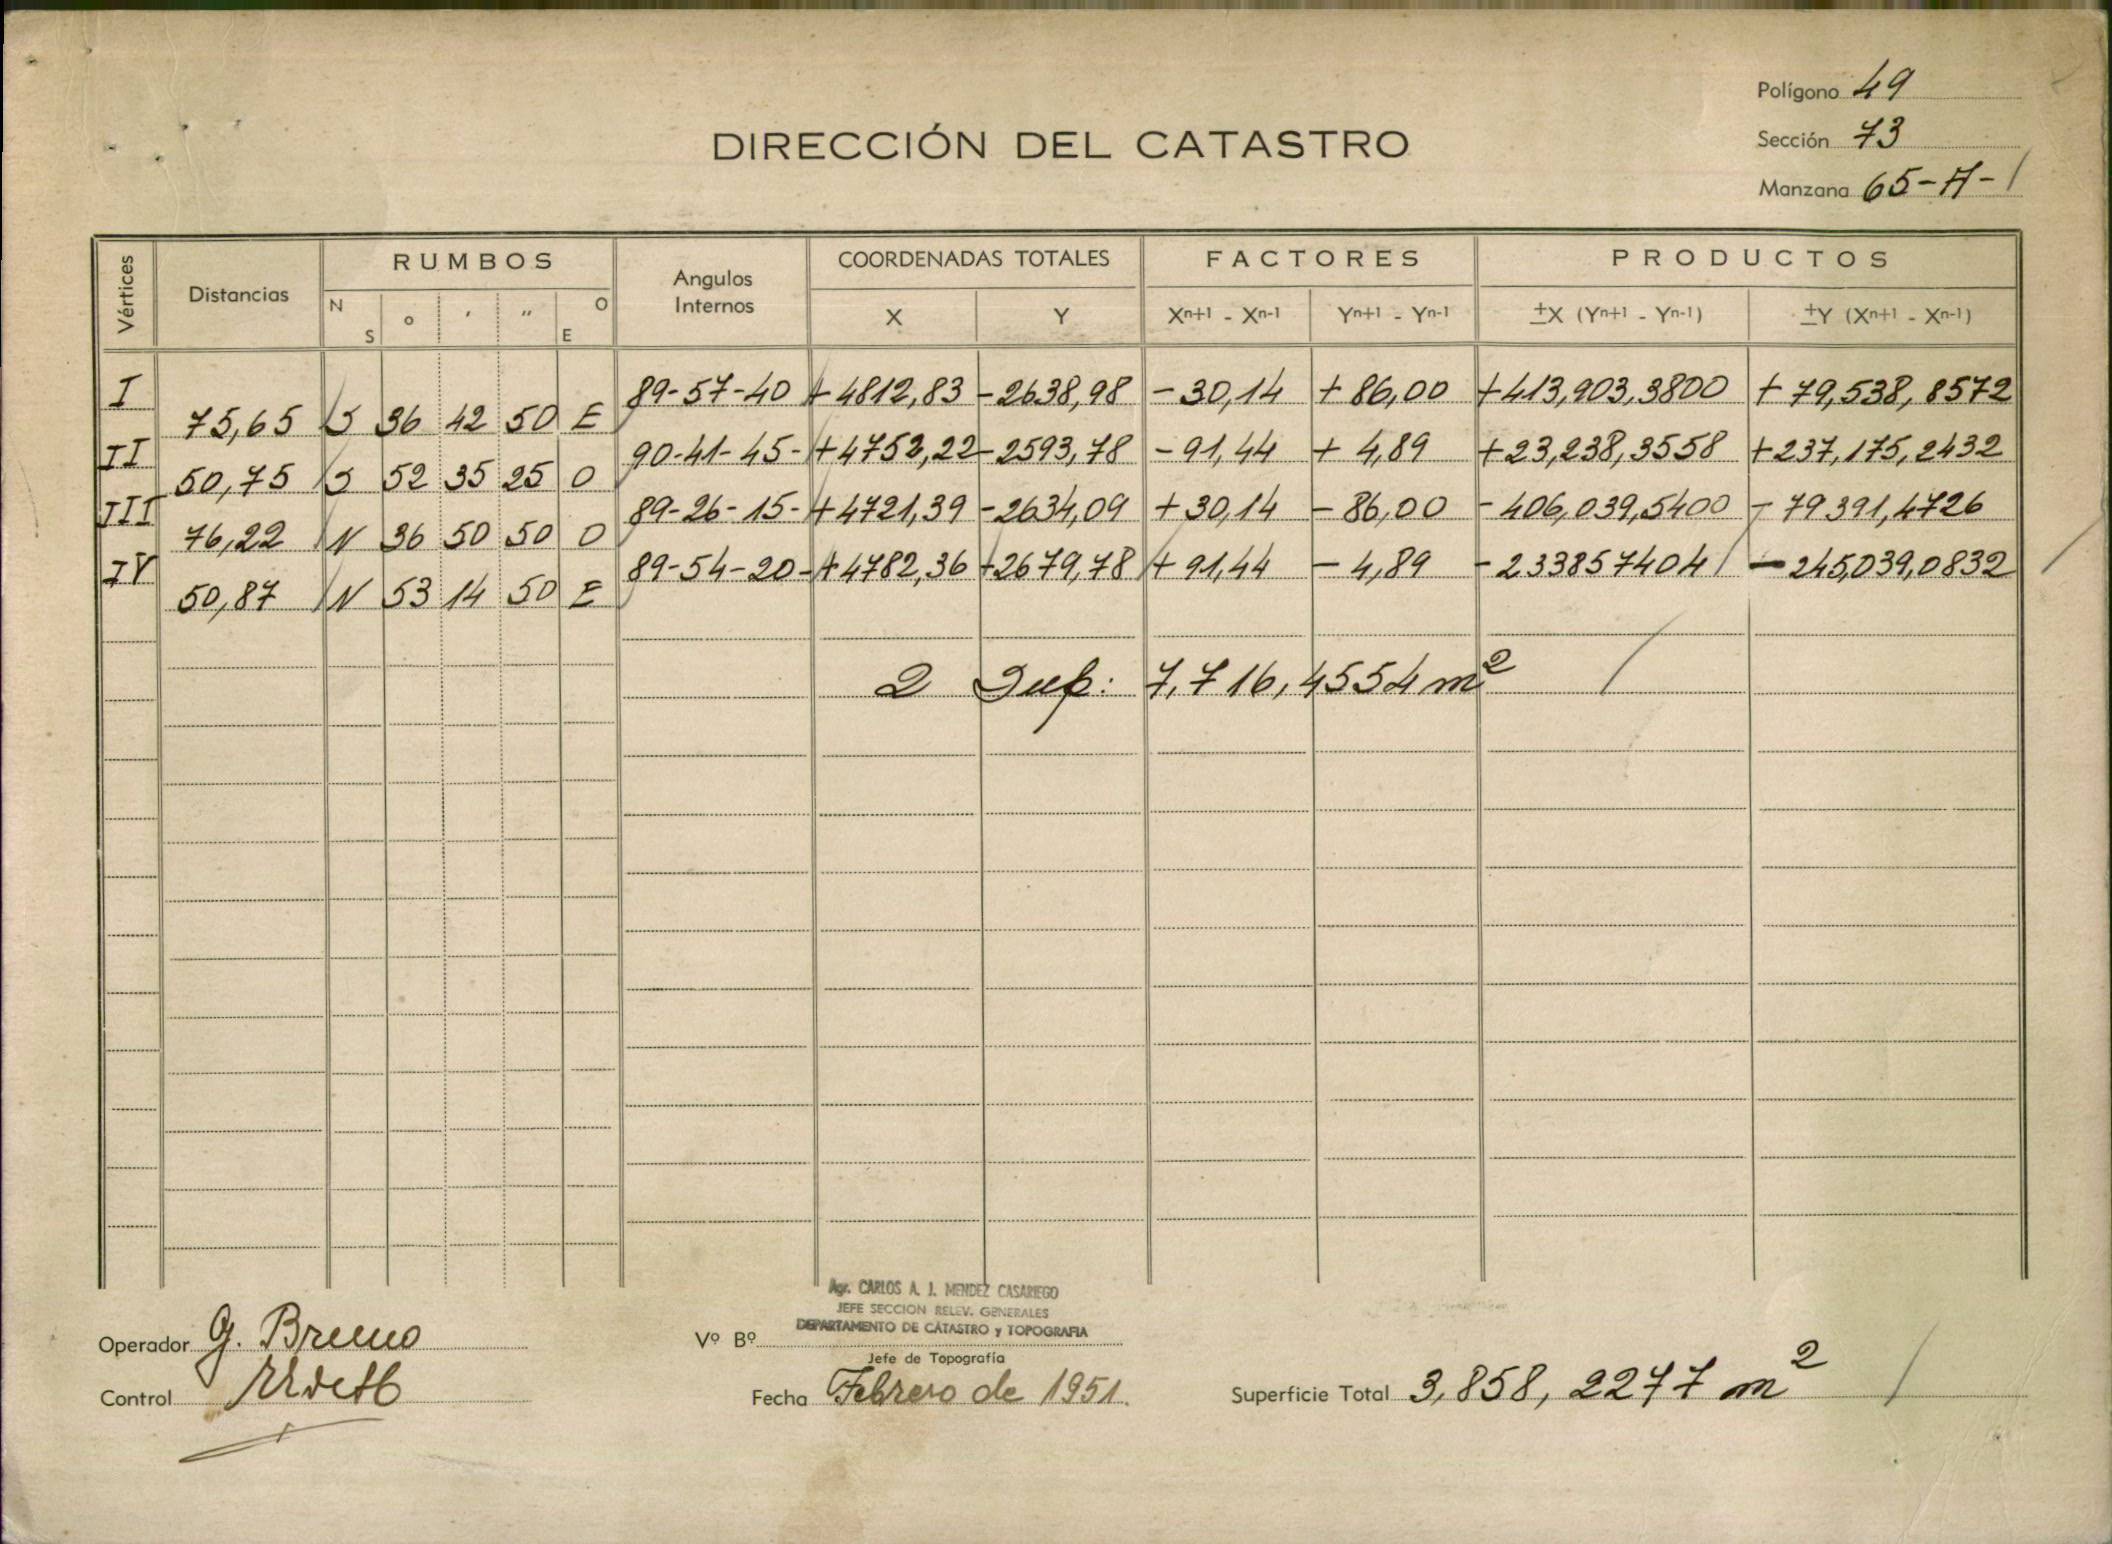 Polígono 49
DIRECCIÓN DEL CATASTRO
Sección 73
Manzana 65-A-1
Vértices Distancias RUMBOS Angulos Internos COORDENADAS TOTALES FACTORES PRODUCTOS
N S ° ' " O E X Y Xn+1 - Xn-1 Yn+1 - Yn-1 ±X (Yn+1 - Yn-1) ±Y (Xn+1 - Xn-1)
I 89-57-40 +4812,83 -2638,98 -30,14 +86,00 +413,903,3800 +79,538,8572
75,65 S 36 42 50 E
II 90-41-45- +4752,22 -2593,78 -91,44 +4,89 +23,238,3558 +237,175,2432
50,75 S 52 35 25 O
III 89-26-15- +4721,39 -2634,09 +30,14 -86,00 -406,039,5400 -79391,4726
76,22 N 36 50 50 O
IV 89-54-20- +4782,36 +2679,78 +91,44 -4,89 -233857404 -245,039,0832
50,87 N 53 14 50 E
2 Sup: 7,716,4554 m2
Agr. CARLOS A. J. MENDEZ CASARIEGO
JEFE SECCION RELEV. GENERALES
DEPARTAMENTO DE CATASTRO y TOPOGRAFIA
Operador G. Bruno Vº Bº
Jefe de Topografía
Control Fecha Febrero de 1951. Superficie Total 3,858,2277 m2